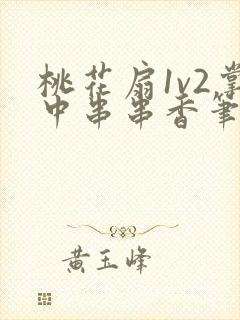 桃花扇1v2掌
中串串香笔
黄玉峰